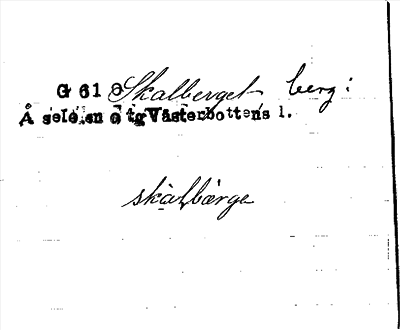 G 61 e Skalberget berg:
Åsele, en o tg Västerbottens l.
skàlbárge